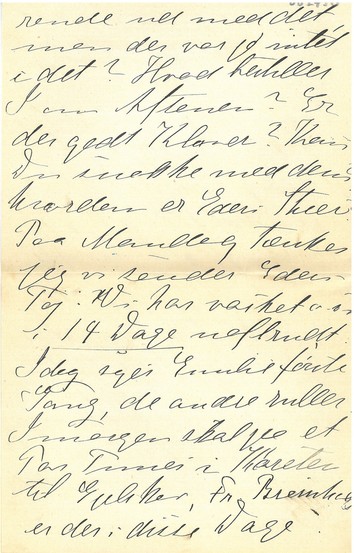 rende ud med det,
men der var jo intet
i det? Hvad bestiller
I om Aftenen? Er
der godt Klaver? Kan
Du snakke med dem
hvordan er Eders
Paa Mandag tænker
jeg vi sender Eders
Tøj. Vi har vasket
i 14 Dage uafbrudt.
Idag syer Emilie første
Gang, de andre ruller
Imorgen skal jeg et
Par Timer i Kareten
til Fr.
er der i disse Dage.